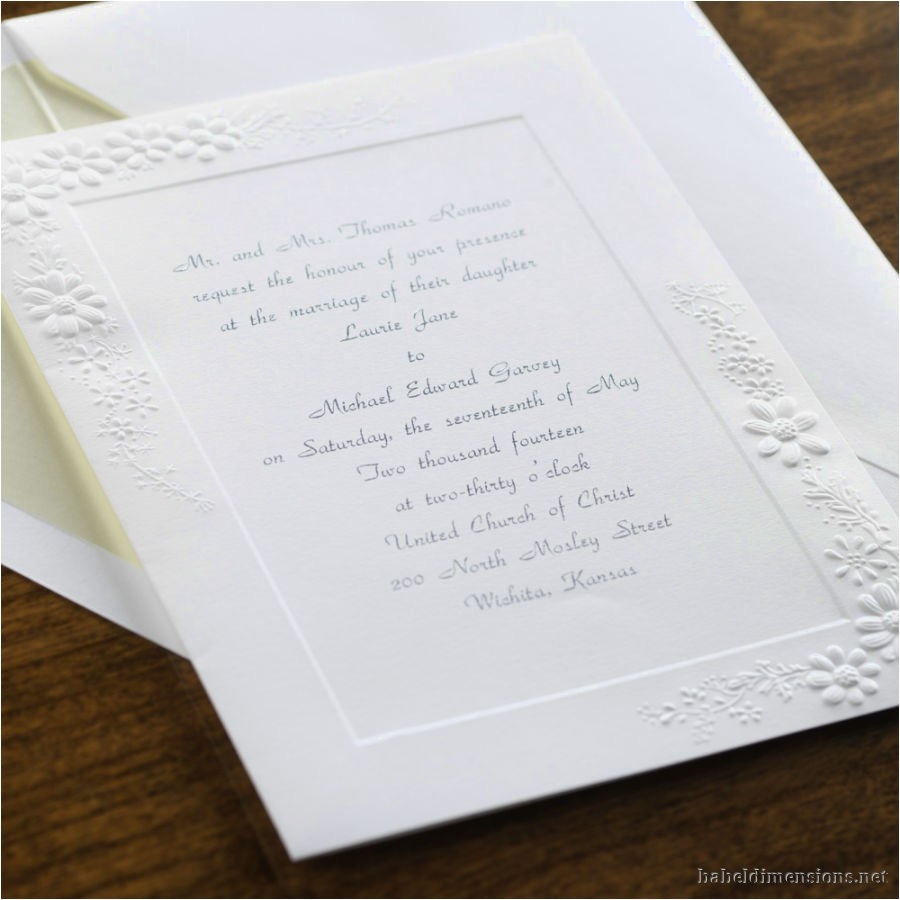 Mr. and Mrs. Thomas Romano
request the honour of your presence
at the marriage of their daughter
Laurie Jane
to
Michael Edward Garvey
on Saturday, the seventeenth of May
Two thousand fourteen
at two-thirty o'clock
United Church of Christ
200 North Mosley Street
Wichita, Kansas
babeldimensions.net